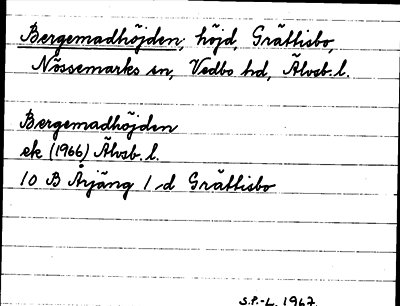 Bergemadhöjden, höjd, Grättisbo,
Nössemarks sn, Vedbo hd, Älvsb. l.
Bergemadhöjden
ek (1966) Älvsb. l.
10 B Årjäng 1 d Grättisbo
S.P.-L. 1967.